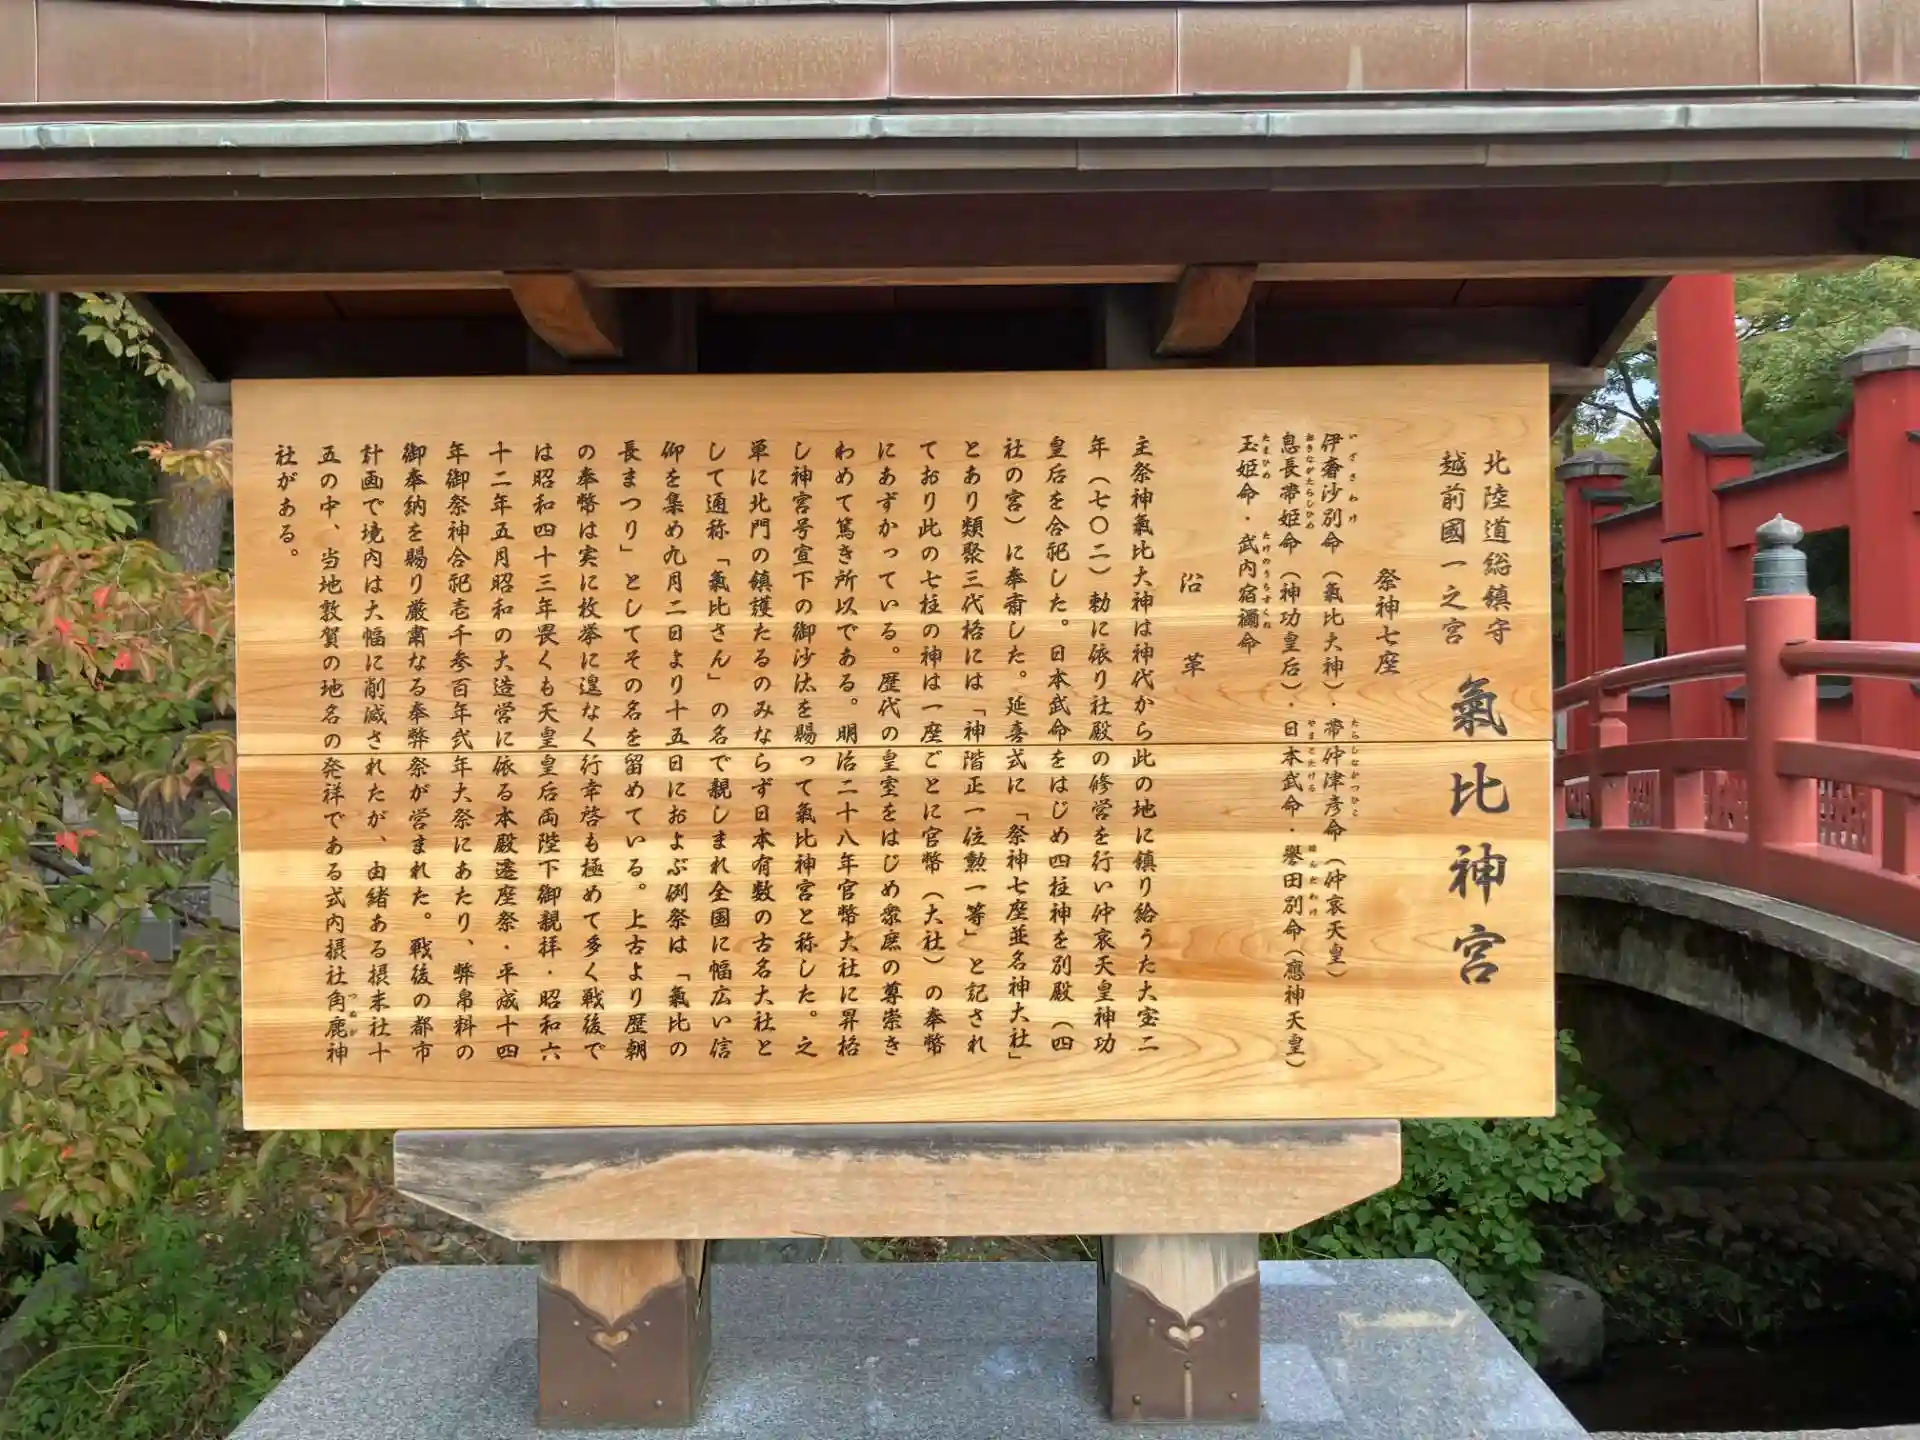 北陸道総鎮守
越前國一之宮
氣比神宮
祭神七座
伊奢沙別命（氣比大神）・帯仲津彦命（仲哀天皇）
息長帯姫命（神功皇后）・日本武命・譽田別命（應神天皇）
玉姫命・武内宿禰命
沿革
主祭神氣比大神は神代から此の地に鎮り給うた大宝二
年（七〇二）勅に依り社殿の修営を行い仲哀天皇神功
皇后を合祀した。日本武命をはじめ四柱神を別殿（四
社の宮）に奉齋した。延喜式に「祭神七座並名神大社」
とあり類聚三代格には「神階正一位勲一等」と記され
ており此の七柱の神は一座ごとに官幣（大社）の奉幣
にあずかっている。歴代の皇室をはじめ衆庶の尊崇き
わめて篤き所以である。明治二十八年官幣大社に昇格
し神宮号宣下の御沙汰を賜って氣比神宮と称した。之
単に北門の鎮護たるのみならず日本有数の古名大社と
して通称「氣比さん」の名で親しまれ全国に幅広い信
仰を集め九月二日より十五日におよぶ例祭は「氣比の
長まつり」としてその名を留めている。上古より歴朝
の奉幣は実に枚挙に遑なく行幸啓も極めて多く戦後で
は昭和四十三年畏くも天皇皇后両陛下御親拝・昭和六
十二年五月昭和の大造営に依る本殿遷座祭・平成十四
年御祭神合祀壱千参百年弐年大祭にあたり、弊帛料の
御奉納を賜り厳粛なる奉弊祭が営まれた。戦後の都市
計画で境内は大幅に削減されたが、由緒ある摂末社十
五の中、当地敦賀の地名の発祥である式内摂社角鹿神
社がある。